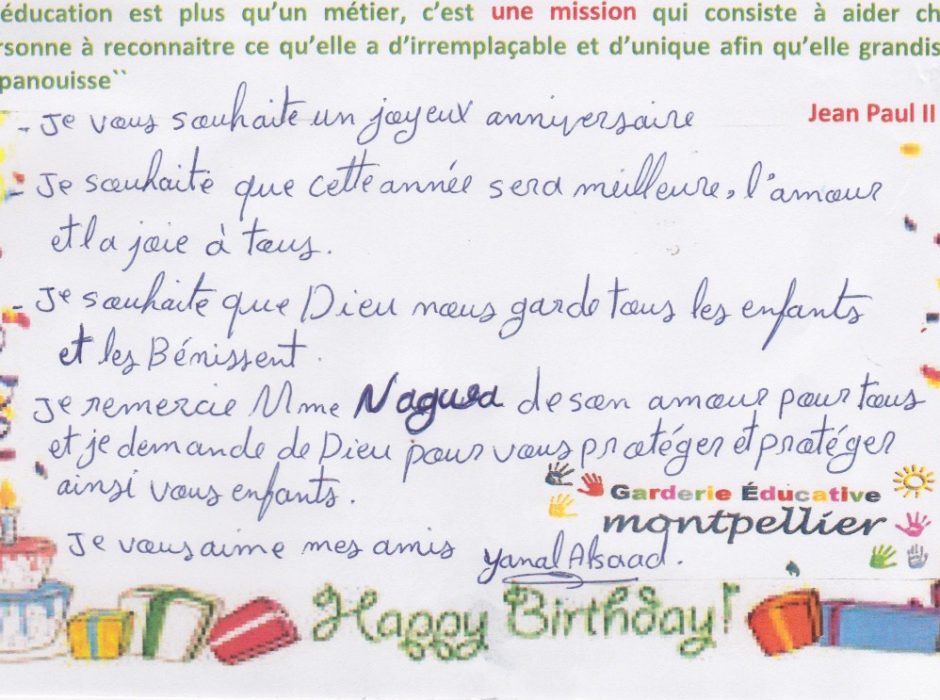 éducation est plus qu'un métier, c'est une mission qui consiste à aider ch
rsonne à reconnaitre ce qu'elle a d'irremplaçable et d'unique afin qu'elle grandis
panouisse``
Jean Paul II
- Je vous souhaite un joyeux anniversaire
- Je souhaite que cette année sera meilleure, l'amour
et la joie à tous.
- Je souhaite que Dieu nous garde tous les enfants
et les Bénissent.
Je remercie Mme Nagwa de son amour pour tous
et je demande de Dieu pour vous protéger et protéger
ainsi vous enfants.
Garderie Éducative
montpellier
Je vous aime mes amis Yanal Alsaad.
Happy Birthday!